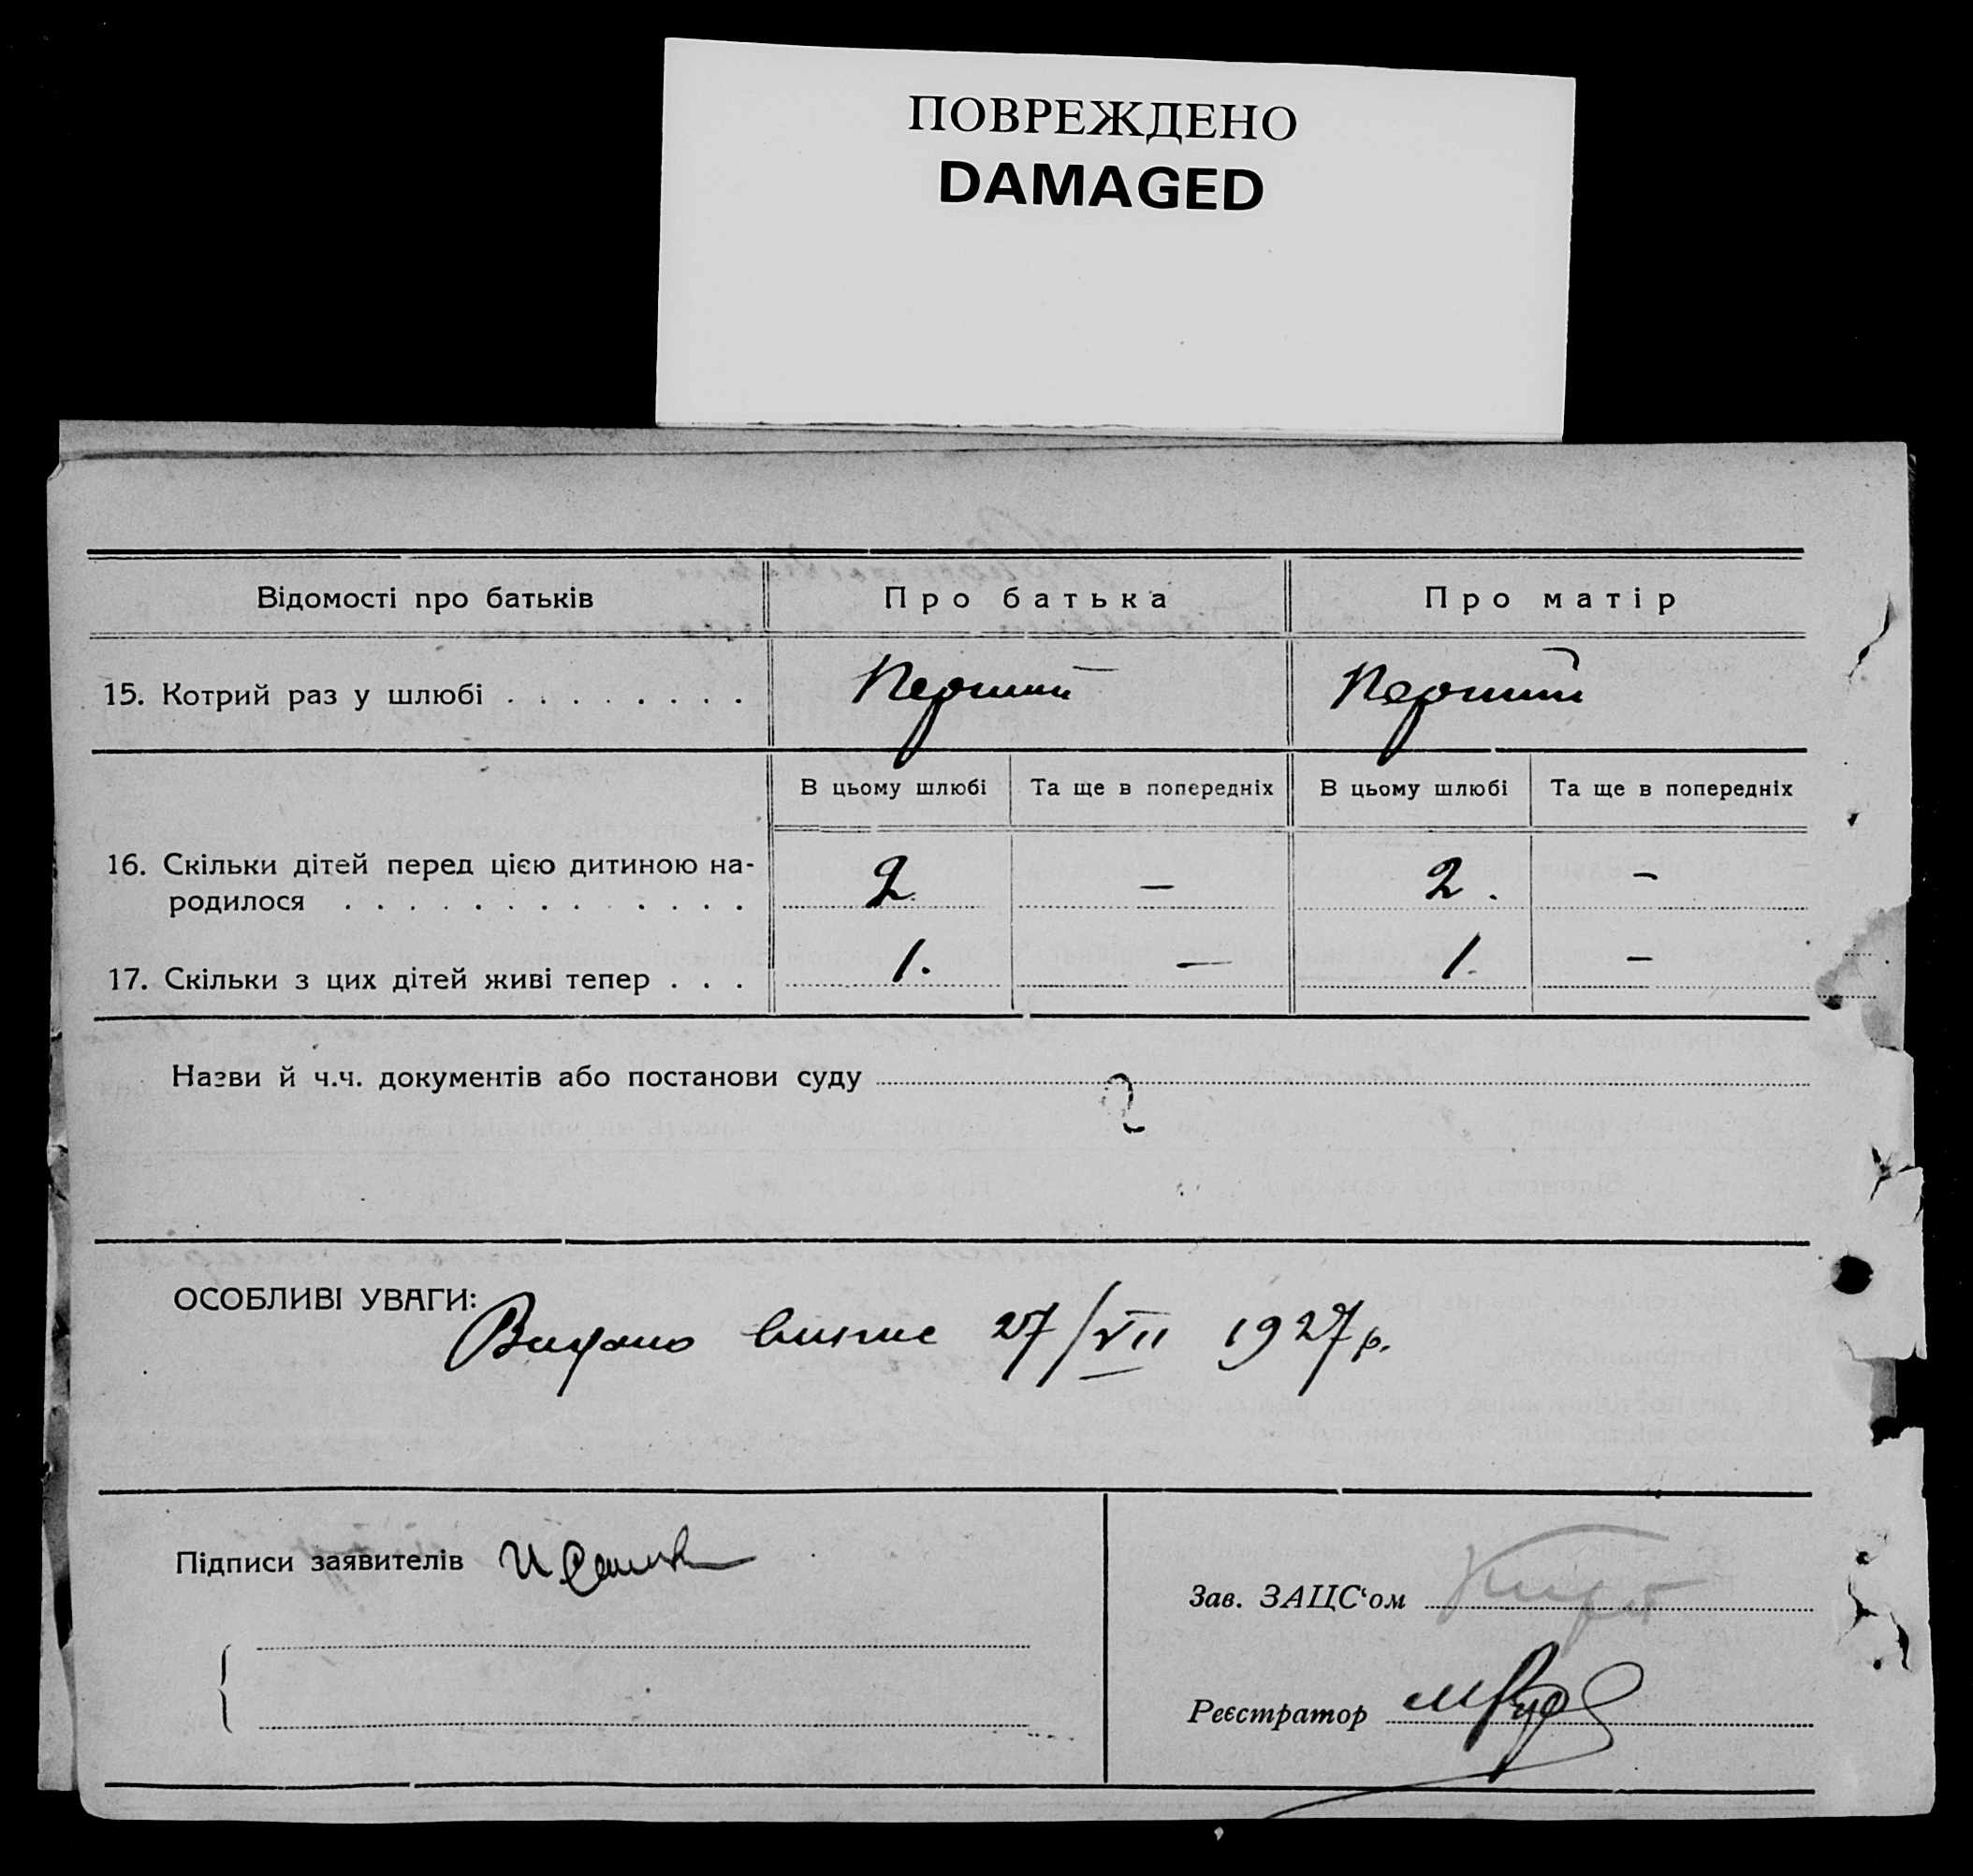 ПОВРЕЖДЕНО
DAMAGED
Відомості про батьків Про батька Про матір
15. Котрий раз у шлюбі . . . . . . . . Перший Перший
В цьому шлюбі Та ще в попередніх В цьому шлюбі Та ще в попередніх
16. Скільки дітей перед цією дитиною на-
родилося . . . . . . . . . . . . . 2 — 2. —
17. Скільки з цих дітей живі тепер . . . 1. — 1. —
Назви й ч.ч. документів або постанови суду
ОСОБЛИВІ УВАГИ:
Видано випис 27/VII 1927 р.
Підписи заявителів
Зав. ЗАЦС‘ом
Реєстратор